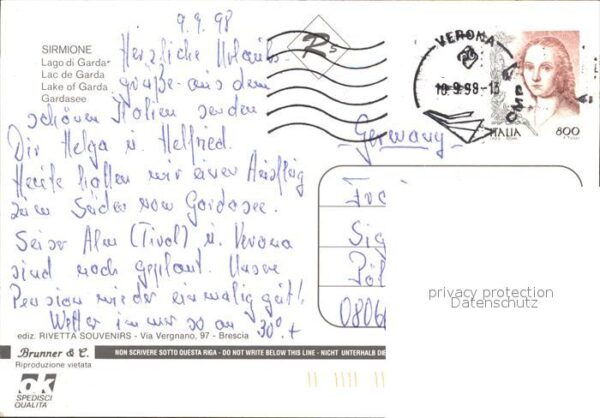 9.9.98
SIRMIONE
Lago di Garda
Lac de Garda
Lake of Garda
Gardasee
Herzliche Urlaubs-
grüße aus dem
schönen Italien senden
Dir Helga u. Helfried.
Heute hatten wir einen Ausflug
zum Süden vom Gardasee.
Seiser Alm (Tirol) u. Verona
sind noch geplant. Unsere
Pension wieder einmalig gut!
Wetter immer so an 30° +
ediz. RIVETTA SOUVENIRS - Via Vergnano, 97 - Brescia
Brunner & C.
Riproduzione vietata
NON SCRIVERE SOTTO QUESTA RIGA - DO NOT WRITE BELOW THIS LINE - NICHT UNTERHALB DIE
ok
SPEDISCI
QUALITÀ
VERONA
10.9.98-13
CMP
ITALIA
800
Germany
Sig
Pöl
0806
privacy protection
Datenschutz